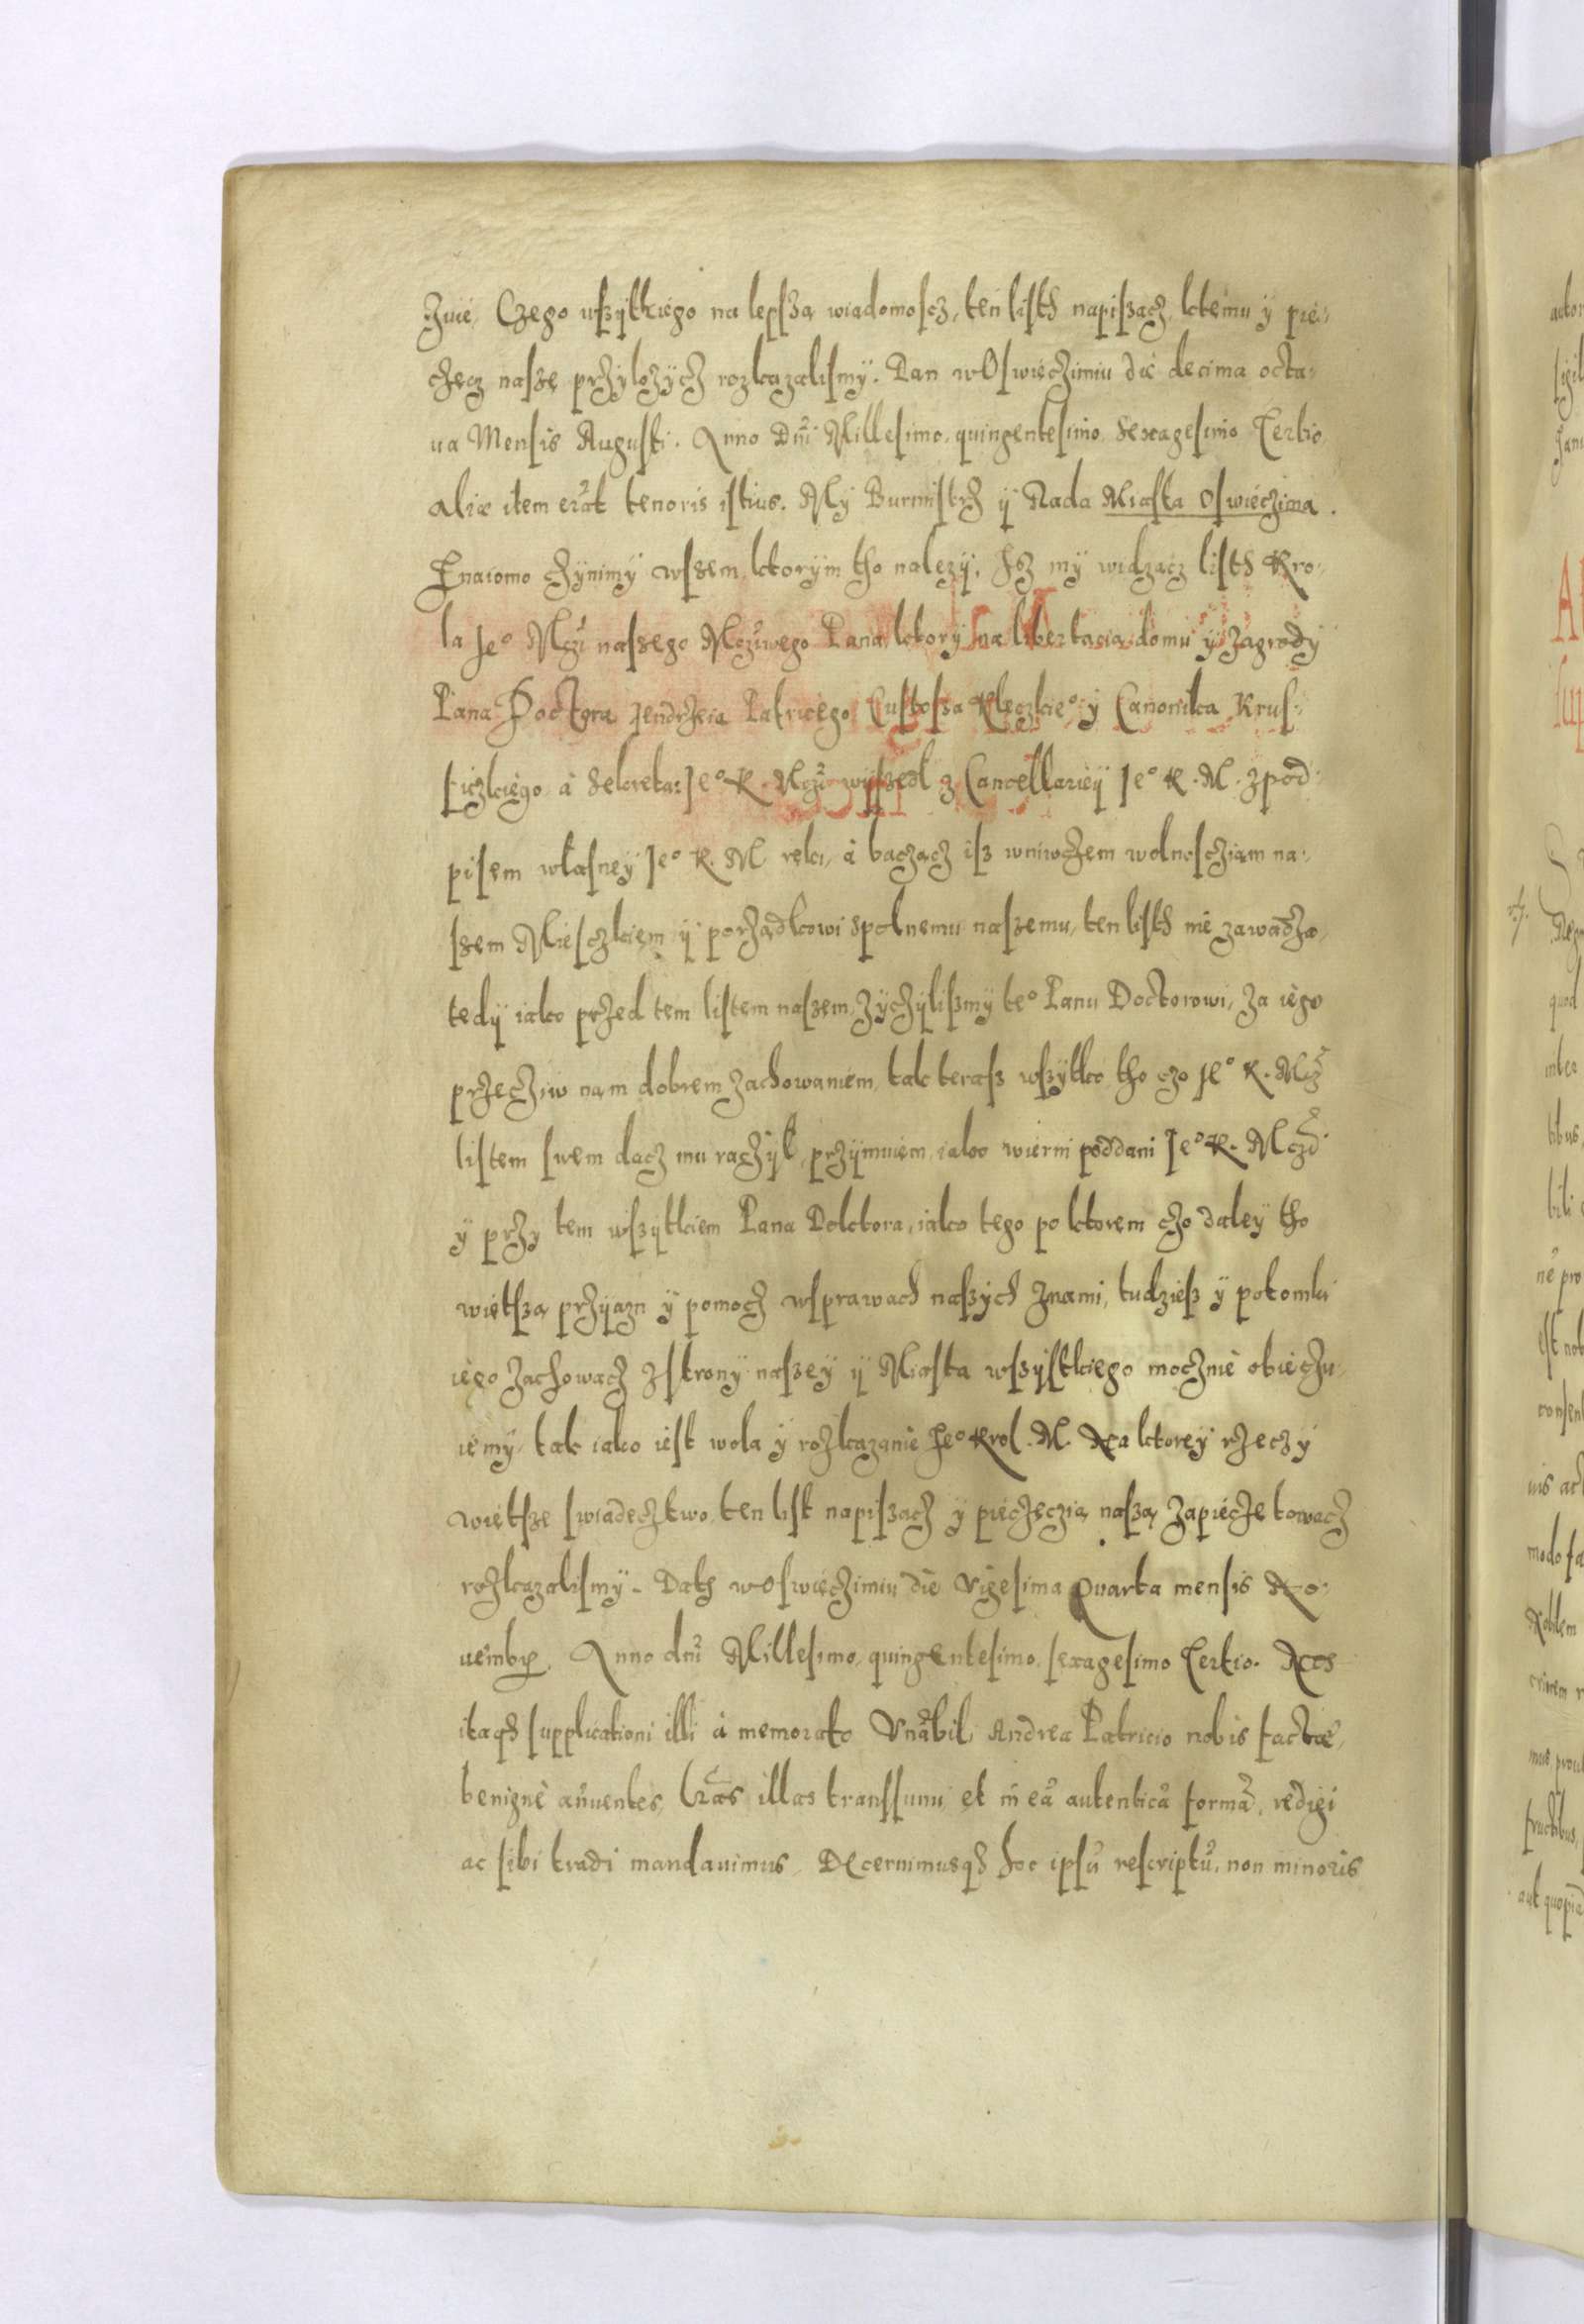 zuie. Czego wszÿtkiego na lepszą wiadomoscz, ten listh napiszacz, ktemu ÿ pie:
czecz nasze przÿlozÿcz rozkazalismÿ. Dan wOswieczimiu die decima octa:
ua Mensis Augusti. Anno Dni Millesimo, quingentesimo Sexagesimo Tertio
aliæ item erāt tenoris istius. Mÿ Burmistrz ÿ Rada Miasta Oswieczima.
Znaiomo czÿnimÿ wszem, ktorÿm tho nalezÿ, Isz mÿ widzacz listh Kro:
la Jeº Mczi naszego Mcziwego Pana, ktorÿ na libertacia domu ÿ zagrodÿ
Pana Doctora Jendrzeia Patricego Custosza Kleczkieº ÿ Canonika Krus:
ficzkiego, à Sekreta: Jeº K. Mczi wÿszedl z Cancellarieÿ Jeº K. M. zpod:
pisem własneÿ Jeº K. M ręki, à baczacz isz wniwczem wolnoscziam na:
szem Miesczkiem ÿ porządkowi spolnemu naszemu, ten listh nie zawadza,
tedÿ iako przed tem listem naszem, zÿczÿliszmÿ teº Panu Doctorowi, za iego
przecziw nam dobrem zachowaniem, tak terasz wszÿtko tho czo Jeº K. Mcz
listem swem dacz mu raczÿł, przÿmuiem, iako wierni poddani Jeº K. Mczi
ÿ przy tem wszÿtkiem Pana Doktora, iako tego po ktorem czo daleÿ tho
wietszą przÿazn ÿ pomocz wsprawach naszÿch znami, tudziesz ÿ potomki
iego zachowacz zstronÿ naszeÿ ÿ Miasta wszÿstkiego mocznie obieczu:
iemÿ, tak iako iest wola ÿ rozkazanie Jeº Krol. M. Na ktoreÿ rzeczÿ
wietsze swiadecztwo, ten list napiszacz ÿ pieczeczią naszą zapieczetowacz
rozkazalismÿ. Dath wOswieczimiu die Vigesima Quarta mensis No:
uembr. Anno dni Millesimo, quingentesimo, sexagesimo Tertio. Nos
itaqȝ supplicationi illi à memorato Vnābili Andrea Patricio nobis factæ,
benignè añuentes, lr̄as illas transsumi et in eā autenticā formā, redigi
ac sibi tradi mandauimus, Decernimusqȝ hoc ipsū rescriptū, non minoris